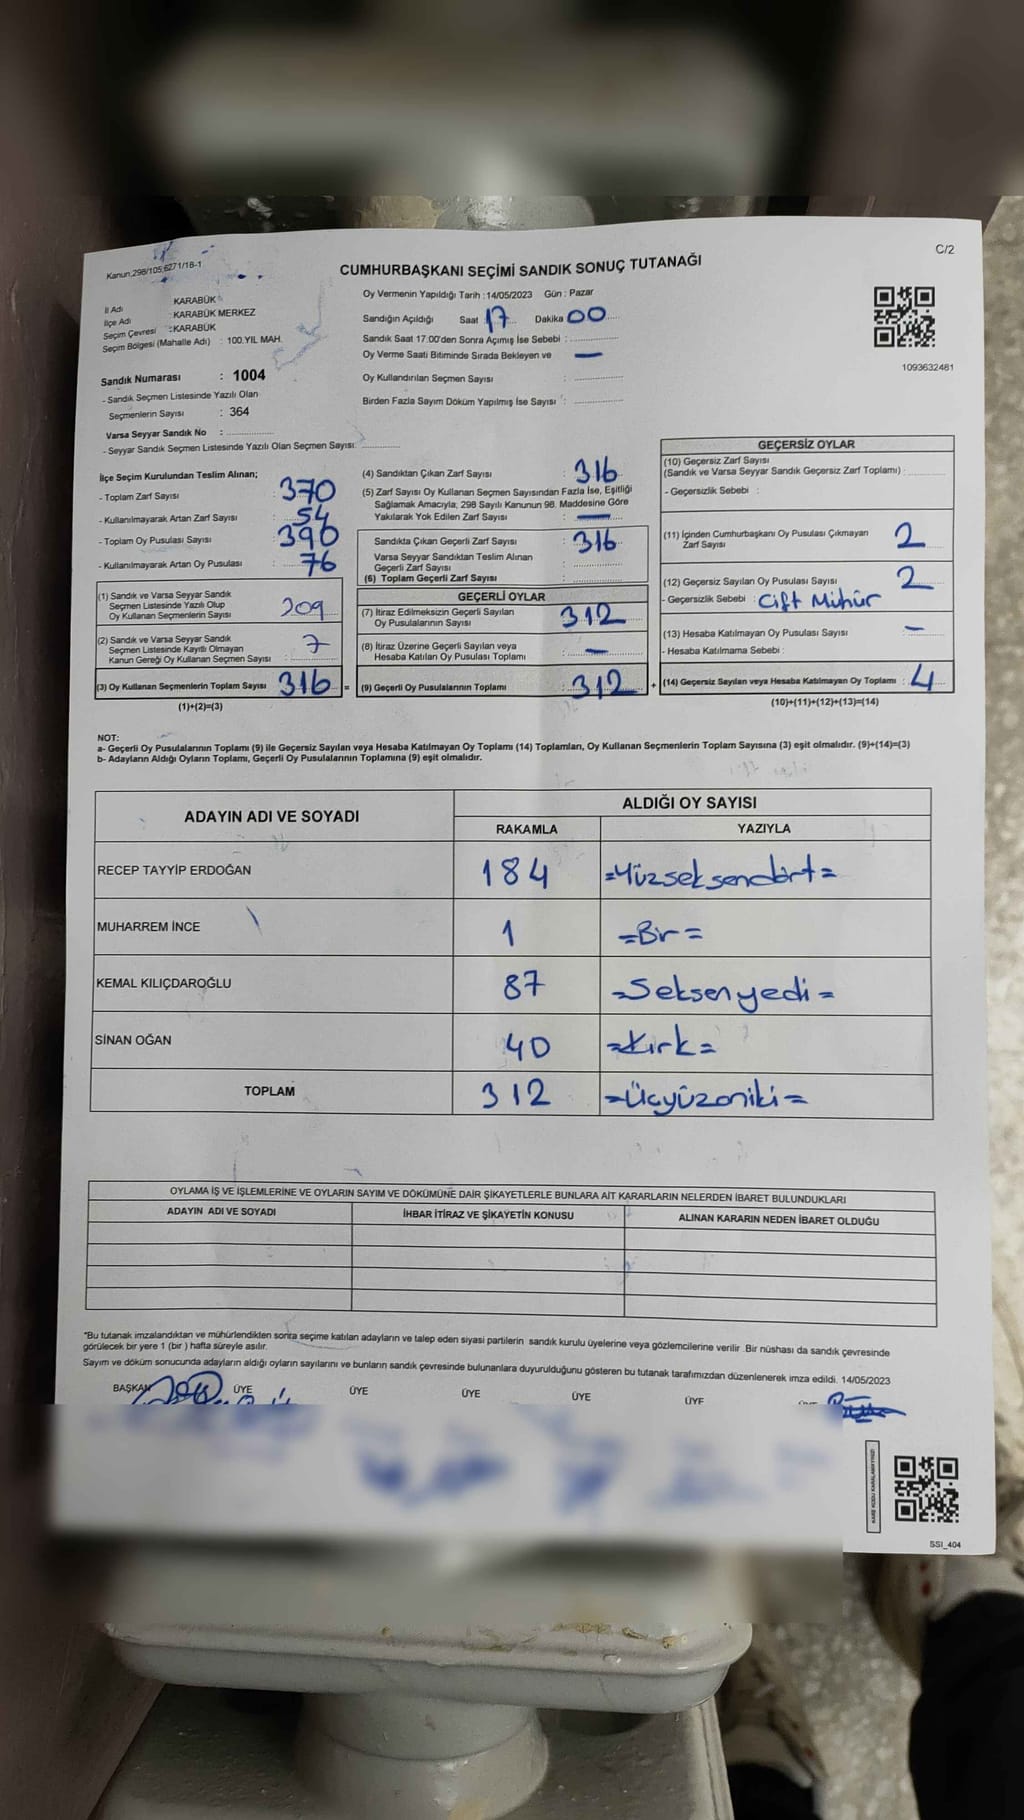 C/2
Kanun.298/105;6271/18-1
CUMHURBAŞKANI SEÇİMİ SANDIK SONUÇ TUTANAĞI
İl Adı KARABÜK
İlçe Adı : KARABÜK MERKEZ
Seçim Çevresi : KARABÜK
Seçim Bölgesi (Mahalle Adı) : 100.YIL MAH.
Oy Vermenin Yapıldığı Tarih :14/05/2023 Gün : Pazar
Sandığın Açıldığı Saat 17 Dakika 00
Sandık Saat 17.00'den Sonra Açımış İse Sebebi :
Oy Verme Saati Bitiminde Sırada Bekleyen ve —
Oy Kullandırılan Seçmen Sayısı :
Birden Fazla Sayım Döküm Yapılmış İse Sayısı :
1093632481
Sandık Numarası : 1004
- Sandık Seçmen Listesinde Yazılı Olan
Seçmenlerin Sayısı : 364
Varsa Seyyar Sandık No :
- Seyyar Sandık Seçmen Listesinde Yazılı Olan Seçmen Sayısı:
İlçe Seçim Kurulundan Teslim Alınan;
- Toplam Zarf Sayısı : 370
- Kullanılmayarak Artan Zarf Sayısı : 54
- Toplam Oy Pusulası Sayısı : 390
- Kullanılmayarak Artan Oy Pusulası : 76
(1) Sandık ve Varsa Seyyar Sandık
Seçmen Listesinde Yazılı Olup
Oy Kullanan Seçmenlerin Sayısı 309
(2) Sandık ve Varsa Seyyar Sandık
Seçmen Listesinde Kayıtlı Olmayan
Kanun Gereği Oy Kullanan Seçmen Sayısı : 7
(3) Oy Kullanan Seçmenlerin Toplam Sayısı 316 =
(1)+(2)=(3)
(4) Sandıktan Çıkan Zarf Sayısı : 316
(5) Zarf Sayısı Oy Kullanan Seçmen Sayısından Fazla İse, Eşitliği
Sağlamak Amacıyla, 298 Sayılı Kanunun 98. Maddesine Göre
Yakılarak Yok Edilen Zarf Sayısı : —
Sandıkta Çıkan Geçerli Zarf Sayısı : 316
Varsa Seyyar Sandıktan Teslim Alınan
Geçerli Zarf Sayısı :
(6) Toplam Geçerli Zarf Sayısı :
GEÇERLİ OYLAR
(7) İtiraz Edilmeksizin Geçerli Sayılan
Oy Pusulalarının Sayısı : 312
(8) İtiraz Üzerine Geçerli Sayılan veya
Hesaba Katılan Oy Pusulası Toplamı : —
(9) Geçerli Oy Pusulalarının Toplamı : 312 +
GEÇERSİZ OYLAR
(10) Geçersiz Zarf Sayısı
(Sandık ve Varsa Seyyar Sandık Geçersiz Zarf Toplamı) :
- Geçersizlik Sebebi :
(11) İçinden Cumhurbaşkanı Oy Pusulası Çıkmayan
Zarf Sayısı 2
(12) Geçersiz Sayılan Oy Pusulası Sayısı 2
- Geçersizlik Sebebi : Çift Mühür
(13) Hesaba Katılmayan Oy Pusulası Sayısı —
- Hesaba Katılmama Sebebi :
(14) Geçersiz Sayılan veya Hesaba Katılmayan Oy Toplamı : 4
(10)+(11)+(12)+(13)=(14)
NOT:
a- Geçerli Oy Pusulalarının Toplamı (9) ile Geçersiz Sayılan veya Hesaba Katılmayan Oy Toplamı (14) Toplamları, Oy Kullanan Seçmenlerin Toplam Sayısına (3) eşit olmalıdır. (9)+(14)=(3)
b- Adayların Aldığı Oyların Toplamı, Geçerli Oy Pusulalarının Toplamına (9) eşit olmalıdır.
ADAYIN ADI VE SOYADI ALDIĞI OY SAYISI
RAKAMLA YAZIYLA
RECEP TAYYİP ERDOĞAN 184 =Yüzseksendört=
MUHARREM İNCE 1 =Bir=
KEMAL KILIÇDAROĞLU 87 =Seksenyedi=
SİNAN OĞAN 40 =Kırk=
TOPLAM 312 =Üçyüzoniki=
OYLAMA İŞ VE İŞLEMLERİNE VE OYLARIN SAYIM VE DÖKÜMÜNE DAİR ŞİKAYETLERLE BUNLARA AİT KARARLARIN NELERDEN İBARET BULUNDUKLARI
ADAYIN ADI VE SOYADI İHBAR İTİRAZ VE ŞİKAYETİN KONUSU ALINAN KARARIN NEDEN İBARET OLDUĞU
*Bu tutanak imzalandıktan ve mühürlendikten sonra seçime katılan adayların ve talep eden siyasi partilerin sandık kurulu üyelerine veya gözlemcilerine verilir .Bir nüshası da sandık çevresinde
görülecek bir yere 1 (bir ) hafta süreyle asılır.
Sayım ve döküm sonucunda adayların aldığı oyların sayılarını ve bunların sandık çevresinde bulunanlara duyurulduğunu gösteren bu tutanak tarafımızdan düzenlenerek imza edildi. 14/05/2023
BAŞKAN ÜYE ÜYE ÜYE ÜYE ÜYE
SSI_404